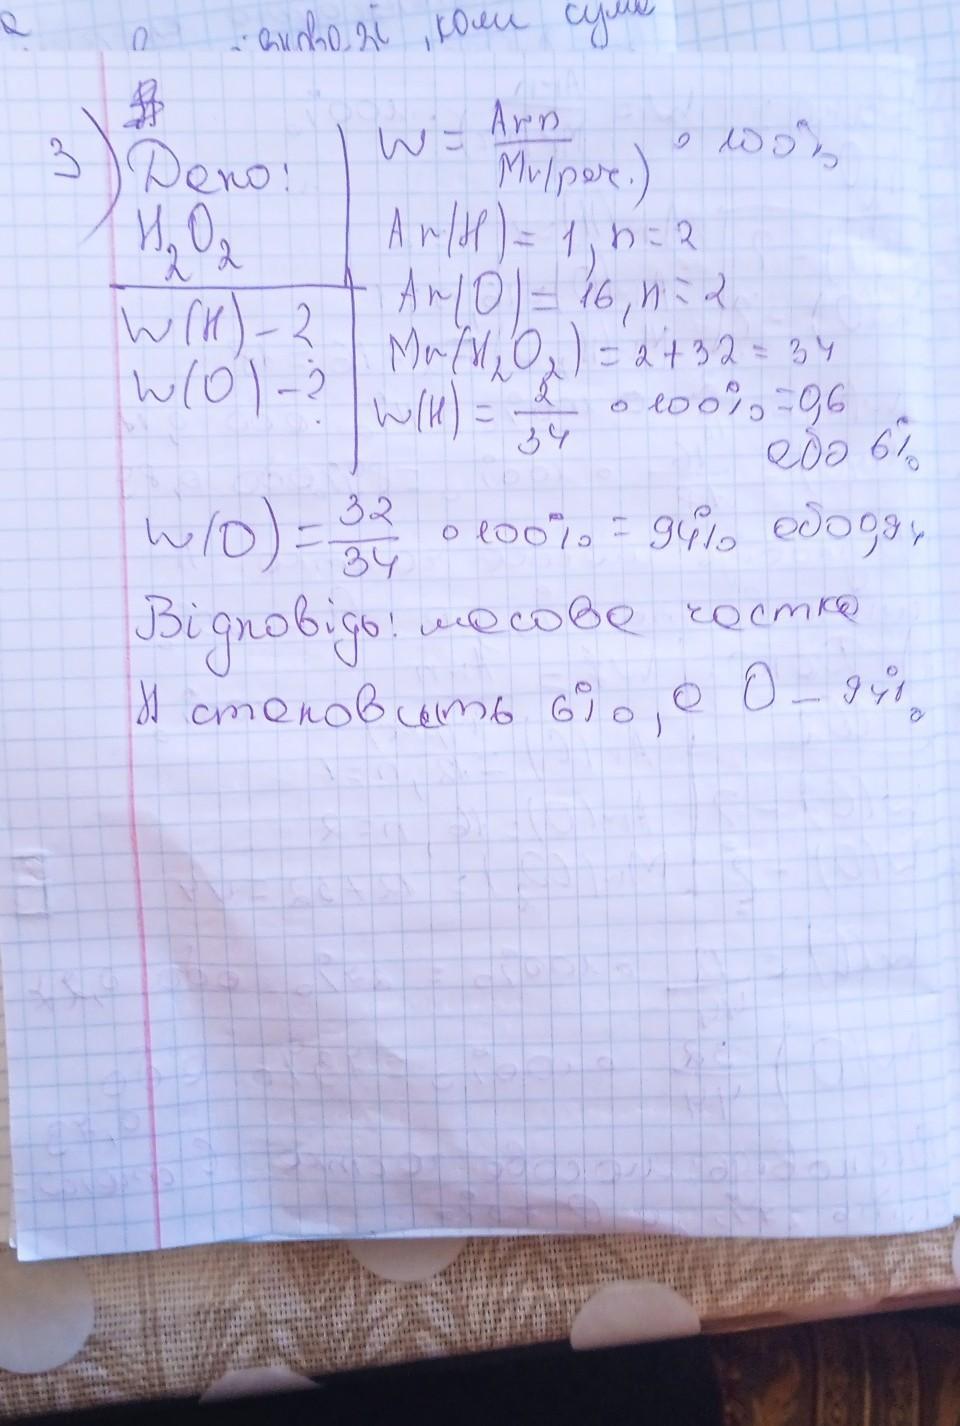 , коли сума
3)
Дано:
H₂O₂
W(H) - ?
W(O) - ?
W = Ar·n / Mr(реч.) · 100%
Ar(H) = 1, n = 2
Ar(O) = 16, n = 2
Mr(H₂O₂) = 2+32 = 34
W(H) = 2/34 · 100% = 0,6
або 6%
W(O) = 32/34 · 100% = 94% або 0,94
Відповідь: масова частка
H становить 6%, а O – 94%